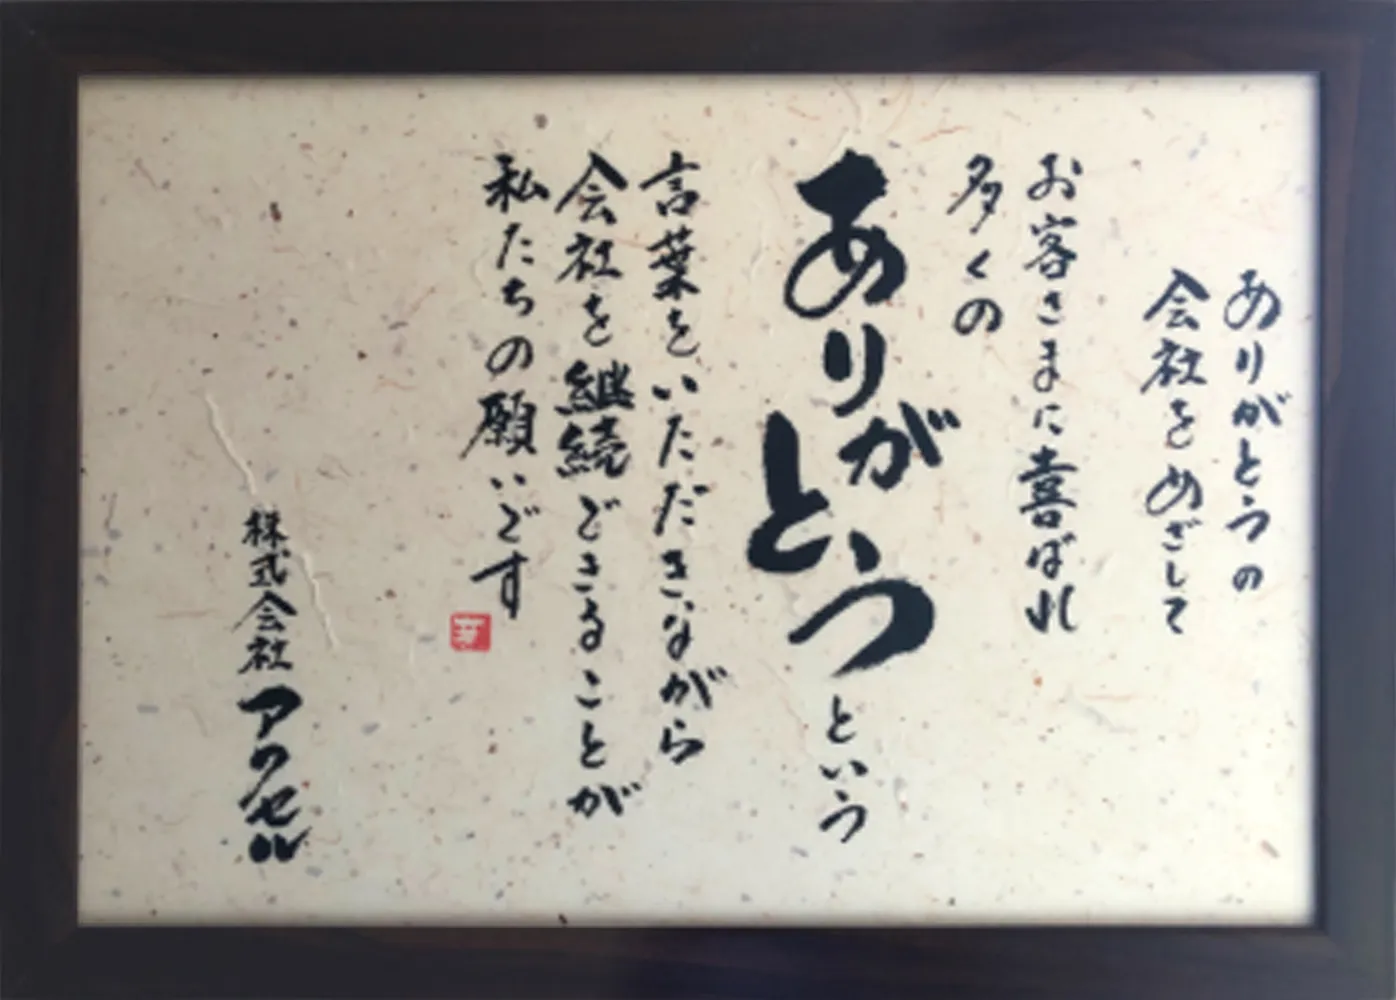 ありがとうの
会社をめざして
お客さまに喜ばれ
多くの
ありがとうという
言葉をいただきながら
会社を継続できることが
私たちの願いです
株式会社アクセル